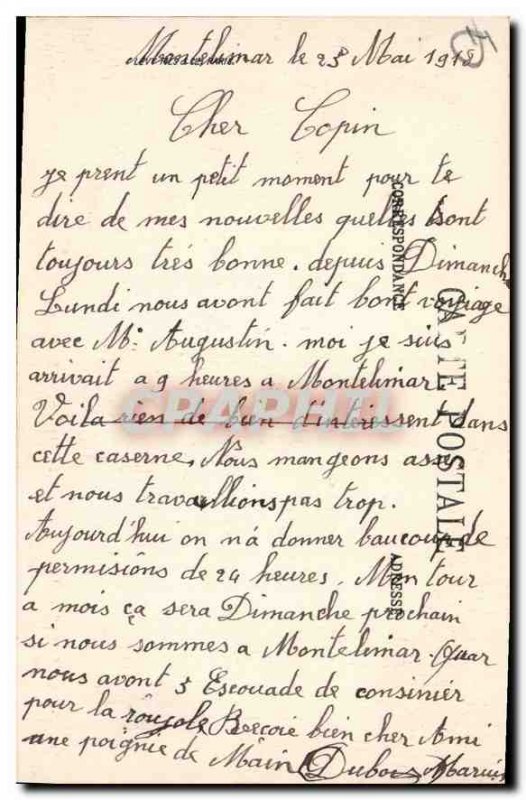 Montelimar le 23 Mai 1918
Cher Copin
je prent un petit moment pour te
dire de mes nouvelles quelles sont
toujours trés bonne. depuis Dimanche
Lundi nous avont fait bont voyiage
avec Mr. Augustin. moi je suis
arrivait a 9 heures a Montelimar
Voila rien de bien d'intéressent dans
cette caserne, Nous mangeons assé
et nous travaillions pas trop.
Aujourd'hui on n'á donner baucoup de
permisións de 24 heures. Mon tour
a mois ça sera Dimanche prochain
si nous sommes a Montelimar. Quar
nous avont 5 Escouade de consinier
pour la roujole, Recoie bien cher Ami
une poignie de Main Dubois Marius
CORRESPONDANCE
CARTE POSTALE
ADRESSE
CPAPHIL